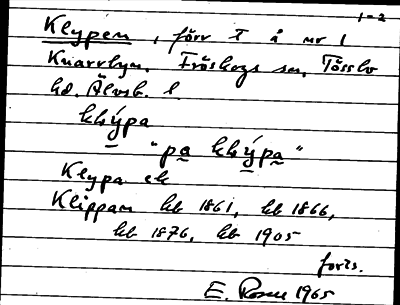 1-2
Klypen, förr T å nr 1
Knarrbyn. Fröskogs sn, Tössbo
hd. Älvsb. l
klýpa
"pa klýpa"
Klypa ek
Klippan hb 1861, hb 1866,
hb 1876, hb 1905
forts.
E. Rosell 1965